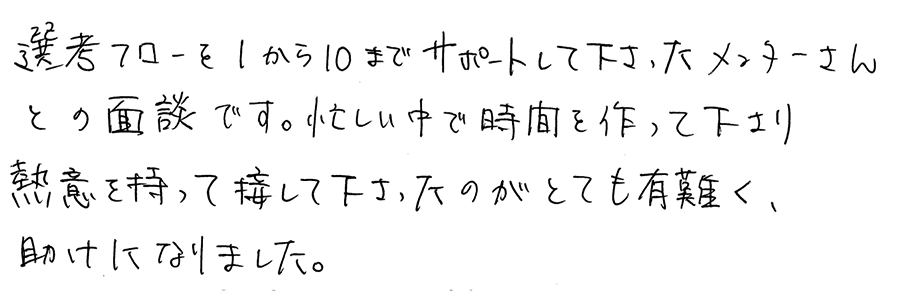 選考フローを1から10までサポートして下さったメンターさん
との面談です。忙しい中で時間を作って下さり
熱意を持って接して下さったのがとても有難く、
助けになりました。